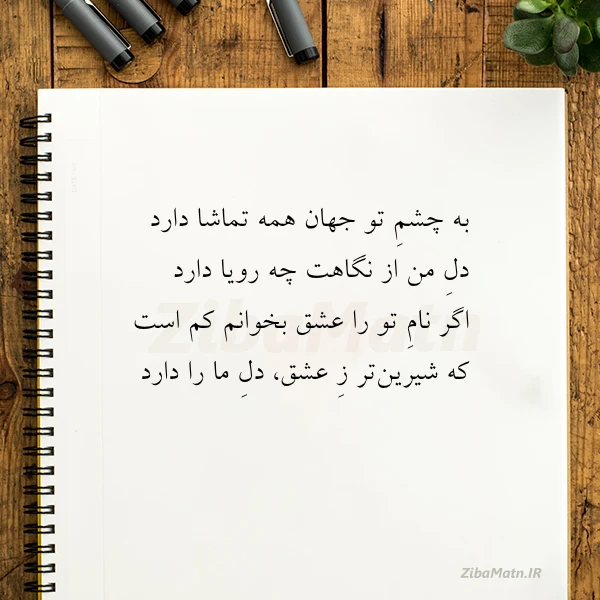 به چشمِ تو جهان همه تماشا دارد
دلِ من از نگاهت چه رویا دارد
اگر نامِ تو را عشق بخوانم کم است
که شیرین‌تر زِ عشق، دلِ ما را دارد
ZibaMatn
ZibaMatn.IR